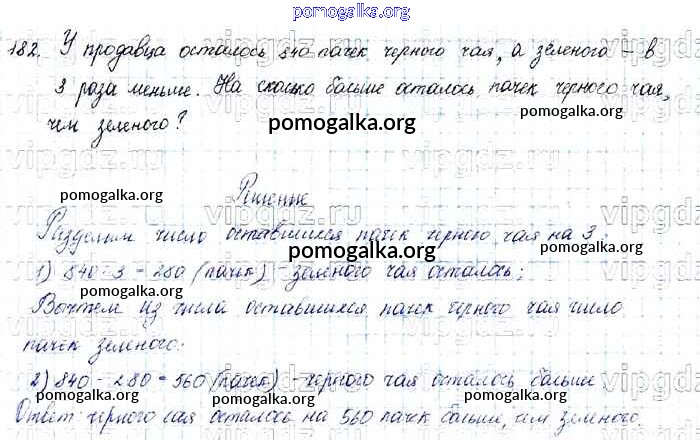 pomogalka.org
182. У продавца осталось 840 пачек черного чая, а зеленого – в
3 раза меньше. На сколько больше осталось пачек черного чая,
чем зеленого?
pomogalka.org
pomogalka.org
vipgdz.ru
pomogalka.org
pomogalka.org
Решение
Разделим число оставшихся пачек черного чая на 3:
pomogalka.org
1) 840 : 3 = 280 (пачек) – зеленого чая осталось;
pomogalka.org
pomogalka.org
Вычтем из числа оставшихся пачек черного чая число
пачек зеленого:
pomogalka.org
2) 840 – 280 = 560 (пачек) – черного чая осталось больше
Ответ черного чая осталось на 560 пачек больше, чем зеленого.
pomogalka.org